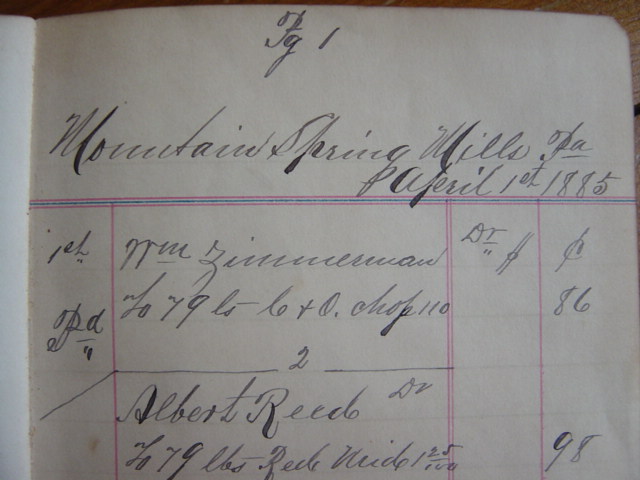 Pg 1
Mountain Spring Mills Pa
April 1st 1885
1st Wm Zimmerman Dr " $ ¢
To 79 ls C & O. Chop 110 86
Pd "
2
Albert Reed Dr
To 79 lbs Red Mid 1 25/100 98